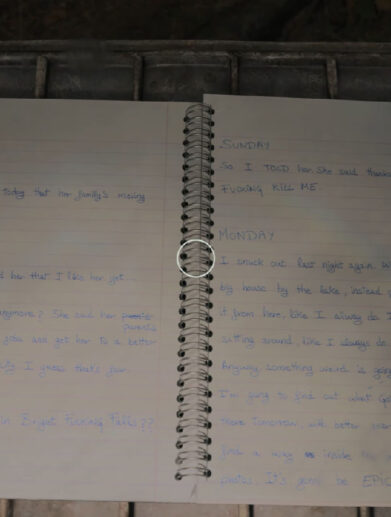 today that her family's moving
d her that I like her yet...
anymore? She said her parents
you and get her to a better
I guess that's fair.
in Bright Fucking Falls??
SUNDAY
So I TOLD her. She said thanks
FUCKING KILL ME.
MONDAY
I snuck out last night again. W
big house by the lake, instead
it from here, like I always do
sitting around, like I always do
Anyway, something weird is going
I'm going to find out what
more tomorrow, with better
find a way inside
photos. It's gonna be EPIC